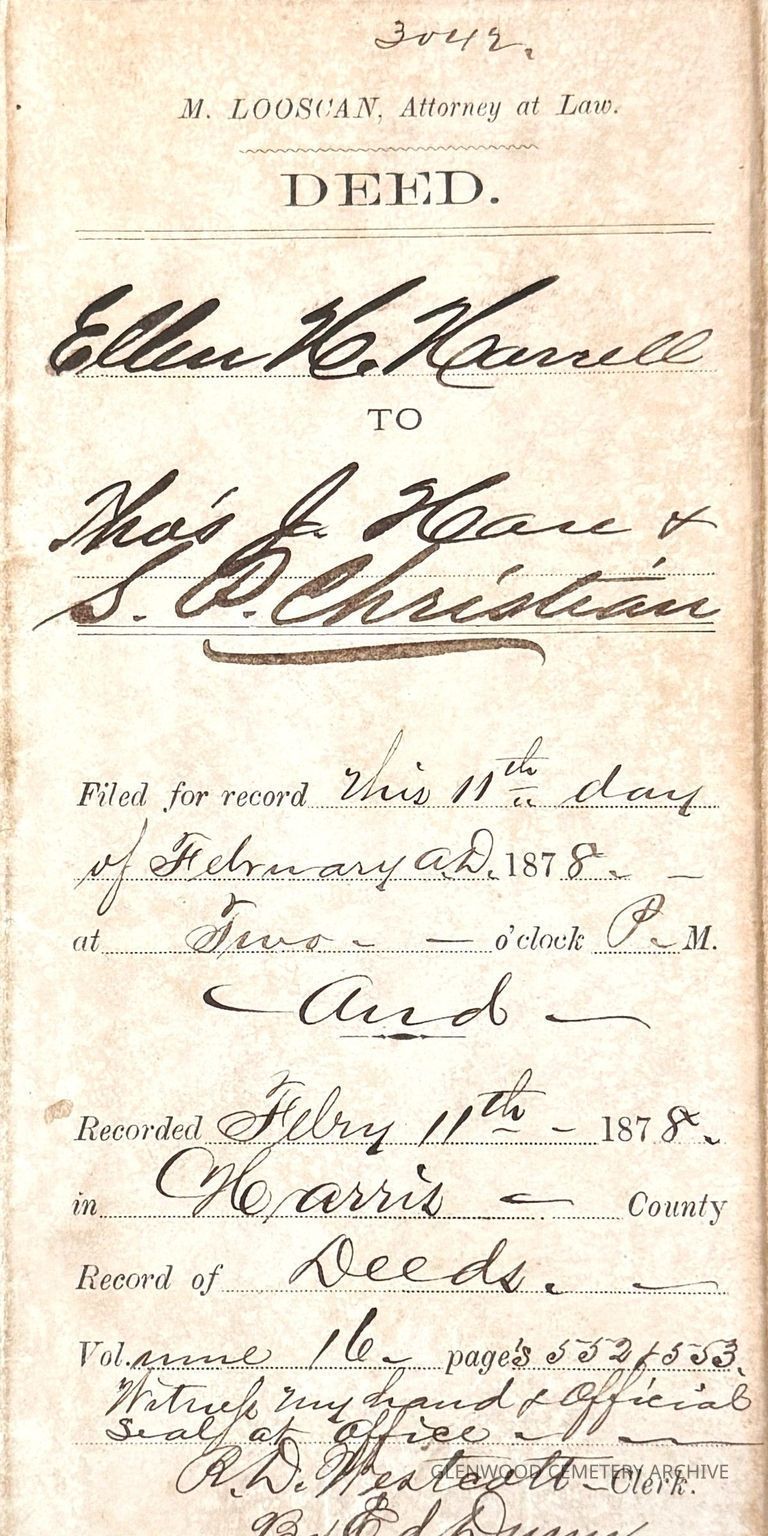 3042.
M. LOOSCAN, Attorney at Law.
DEED.
Ellen H. Harrell
TO
Tho's J. Hare &
S. P. Christian
Filed for record this 11th day
of February A.D. 1878.
at Two - — o'clock P. M.
And —
Recorded Febry 11th - 1878.
in Harris — County
Record of Deeds. —
Volume 16 - page's 552 & 553.
Witness my hand & Official
Seal at office - —
R. D. Westcott - Clerk.
GLENWOOD CEMETERY ARCHIVE
By Ed